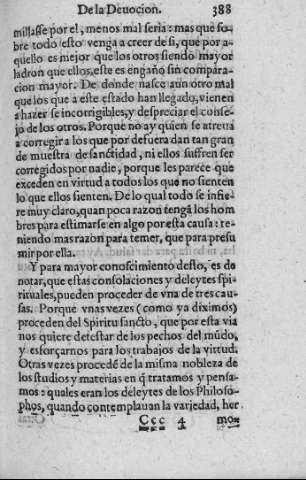 De la Deuocion. 388
millasse por el, menos mal seria: mas que so-
bre todo esto venga a creer de si, que por a-
quello es mejor que los otros siendo mayor
ladron que ellos, este es engaño sin compara-
cion mayor. De donde nasce aun otro mal
que los que a este estado han llegado, vienen
a hazer se incorrigibles, y despreciar el conse-
jo de los otros. Porque no ay quien se atreua
a corregir a los que por defuera dan tan gran
de muestra de sanctidad, ni ellos suffren ser
corregidos por nadie, porque les parece que
exceden en virtud a todos los que no sienten
lo que ellos sienten. De lo qual todo se infie-
re muy claro, quan poca razon tengã los hom
bres para estimarse en algo por esta causa: te-
niendo mas razon para temer, que para presu
mir por ella.
Y para mayor conoscimiento desto, es de
notar, que estas consolaciones y deleytes spi-
rituales, pueden proceder de vna de tres cau-
sas. Porque vnas vezes (como ya diximos)
proceden del Spiritu sancto, que por esta via
nos quiere detestar de los pechos del mũdo,
y esforçarnos para los trabajos de la virtud.
Otras vezes procedẽ de la misma nobleza de
los studios y materias en q̃ tratamos y pensa-
mos: quales eran los deleytes de los Philoso-
phos, quando contemplauan la variedad, her
Ccc 4 mo-